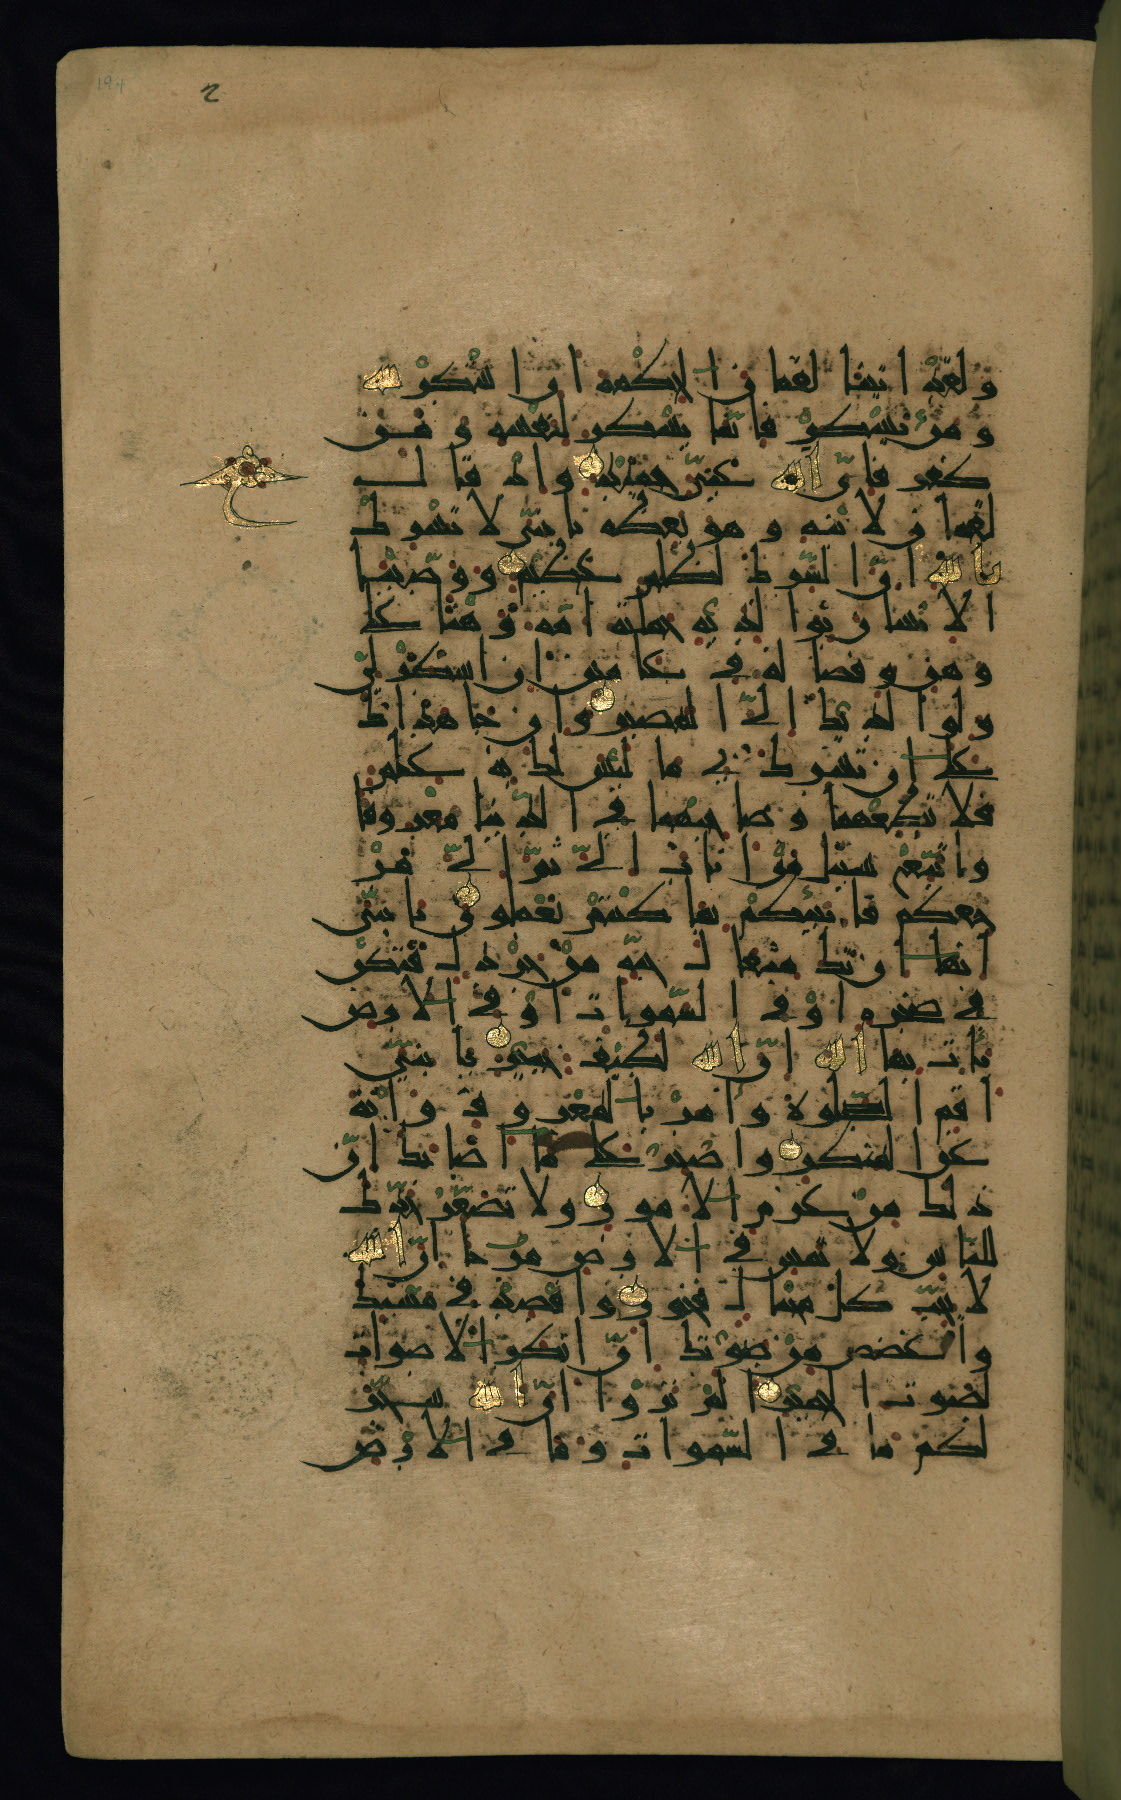 194
ولقد اتينا لقمان الحكمة ان اشكر لله
ومن يشكر فانما يشكر لنفسه ومن
كفر فان الله غني حميد واذ قال
لقمان لابنه وهو يعظه يا بني لا تشرك
بالله ان الشرك لظلم عظيم ووصينا
الانسان بوالديه حملته امه وهنا على
وهن وفصاله في عامين ان اشكر لي
ولوالديك الي المصير وان جاهداك
على ان تشرك بي ما ليس لك به علم
فلا تطعهما وصاحبهما في الدنيا معروفا
واتبع سبيل من اناب الي ثم الي مر
جعكم فانبئكم بما كنتم تعملون يا بني
انها ان تك مثقال حبة من خردل فتكن
في صخرة او في السموات او في الارض
يات بها الله ان الله لطيف خبير يا بني
اقم الصلوة وامر بالمعروف وانه
عن المنكر واصبر على ما اصابك ان
ذلك من عزم الامور ولا تصعر خدك
للناس ولا تمش في الارض مرحا ان الله
لا يحب كل مختال فخور واقصد في مشيك
واغضض من صوتك ان انكر الاصوات
لصوت الحمير الم تروا ان الله سخر
لكم ما في السموات وما في الارض